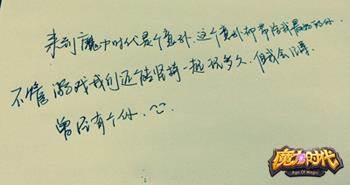 来到魔力时代是个意外，这个意外却带给我最好的你.
不管游戏我们还能坚持一起玩多久，但我会记得
曾经有个你.
魔力时代
Age Of Magic